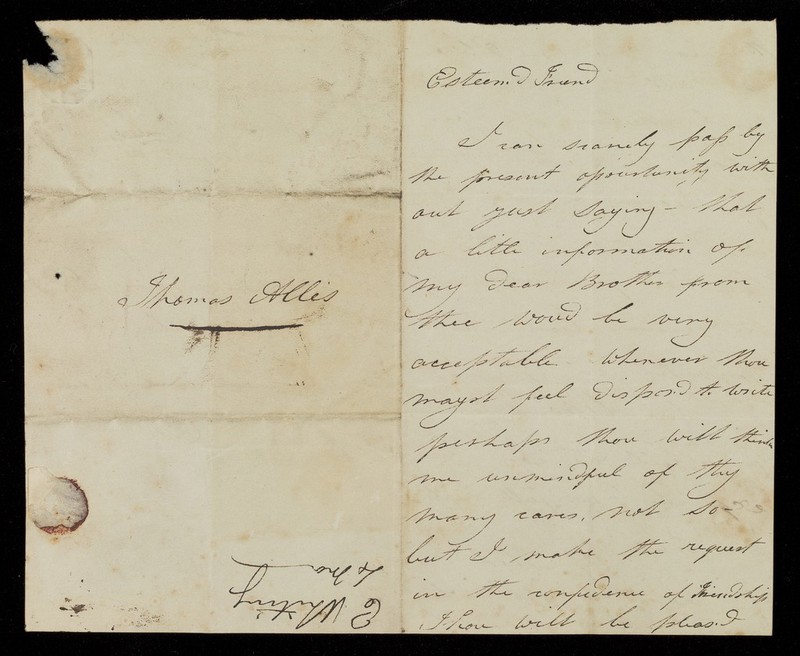 Thomas Allis
E Whiting
Esteem.d Friend
I can scarcely pass by
the present opourtunity with
out just saying - that
a little information of
my dear Brother from
thee woud be very
acceptable whenever thou
mayst feel dispos.d to write
perhaps thou will think
me unmindful of thy
many cares, not so -
but I make the request
in the confidence of Friendship
Thou will be pleas.d